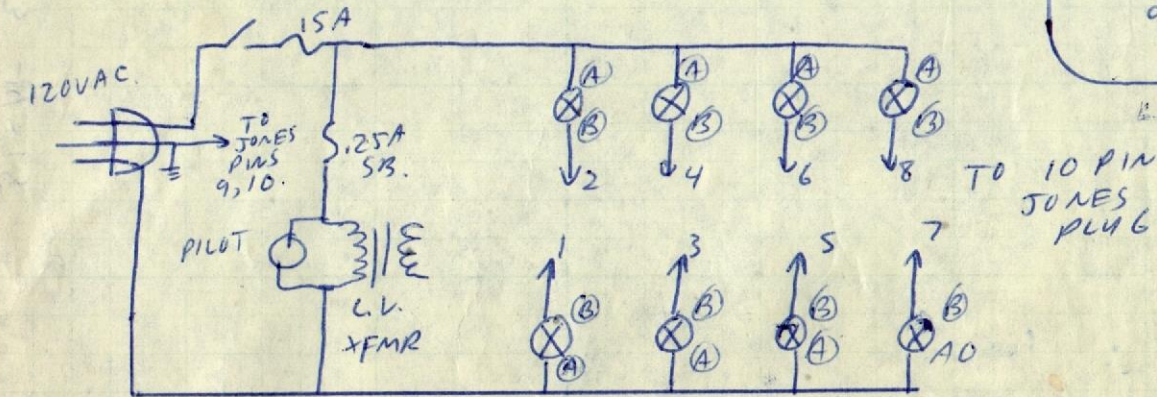 15A
120VAC.
TO
JONES
PINS
9,10.
.25A
S.B.
PILOT
L.V.
XFMR
A A A A
B B B B
2 4 6 8
TO 10 PIN
JONES
PLUG
1 3 5 7
B B B B
A A A A